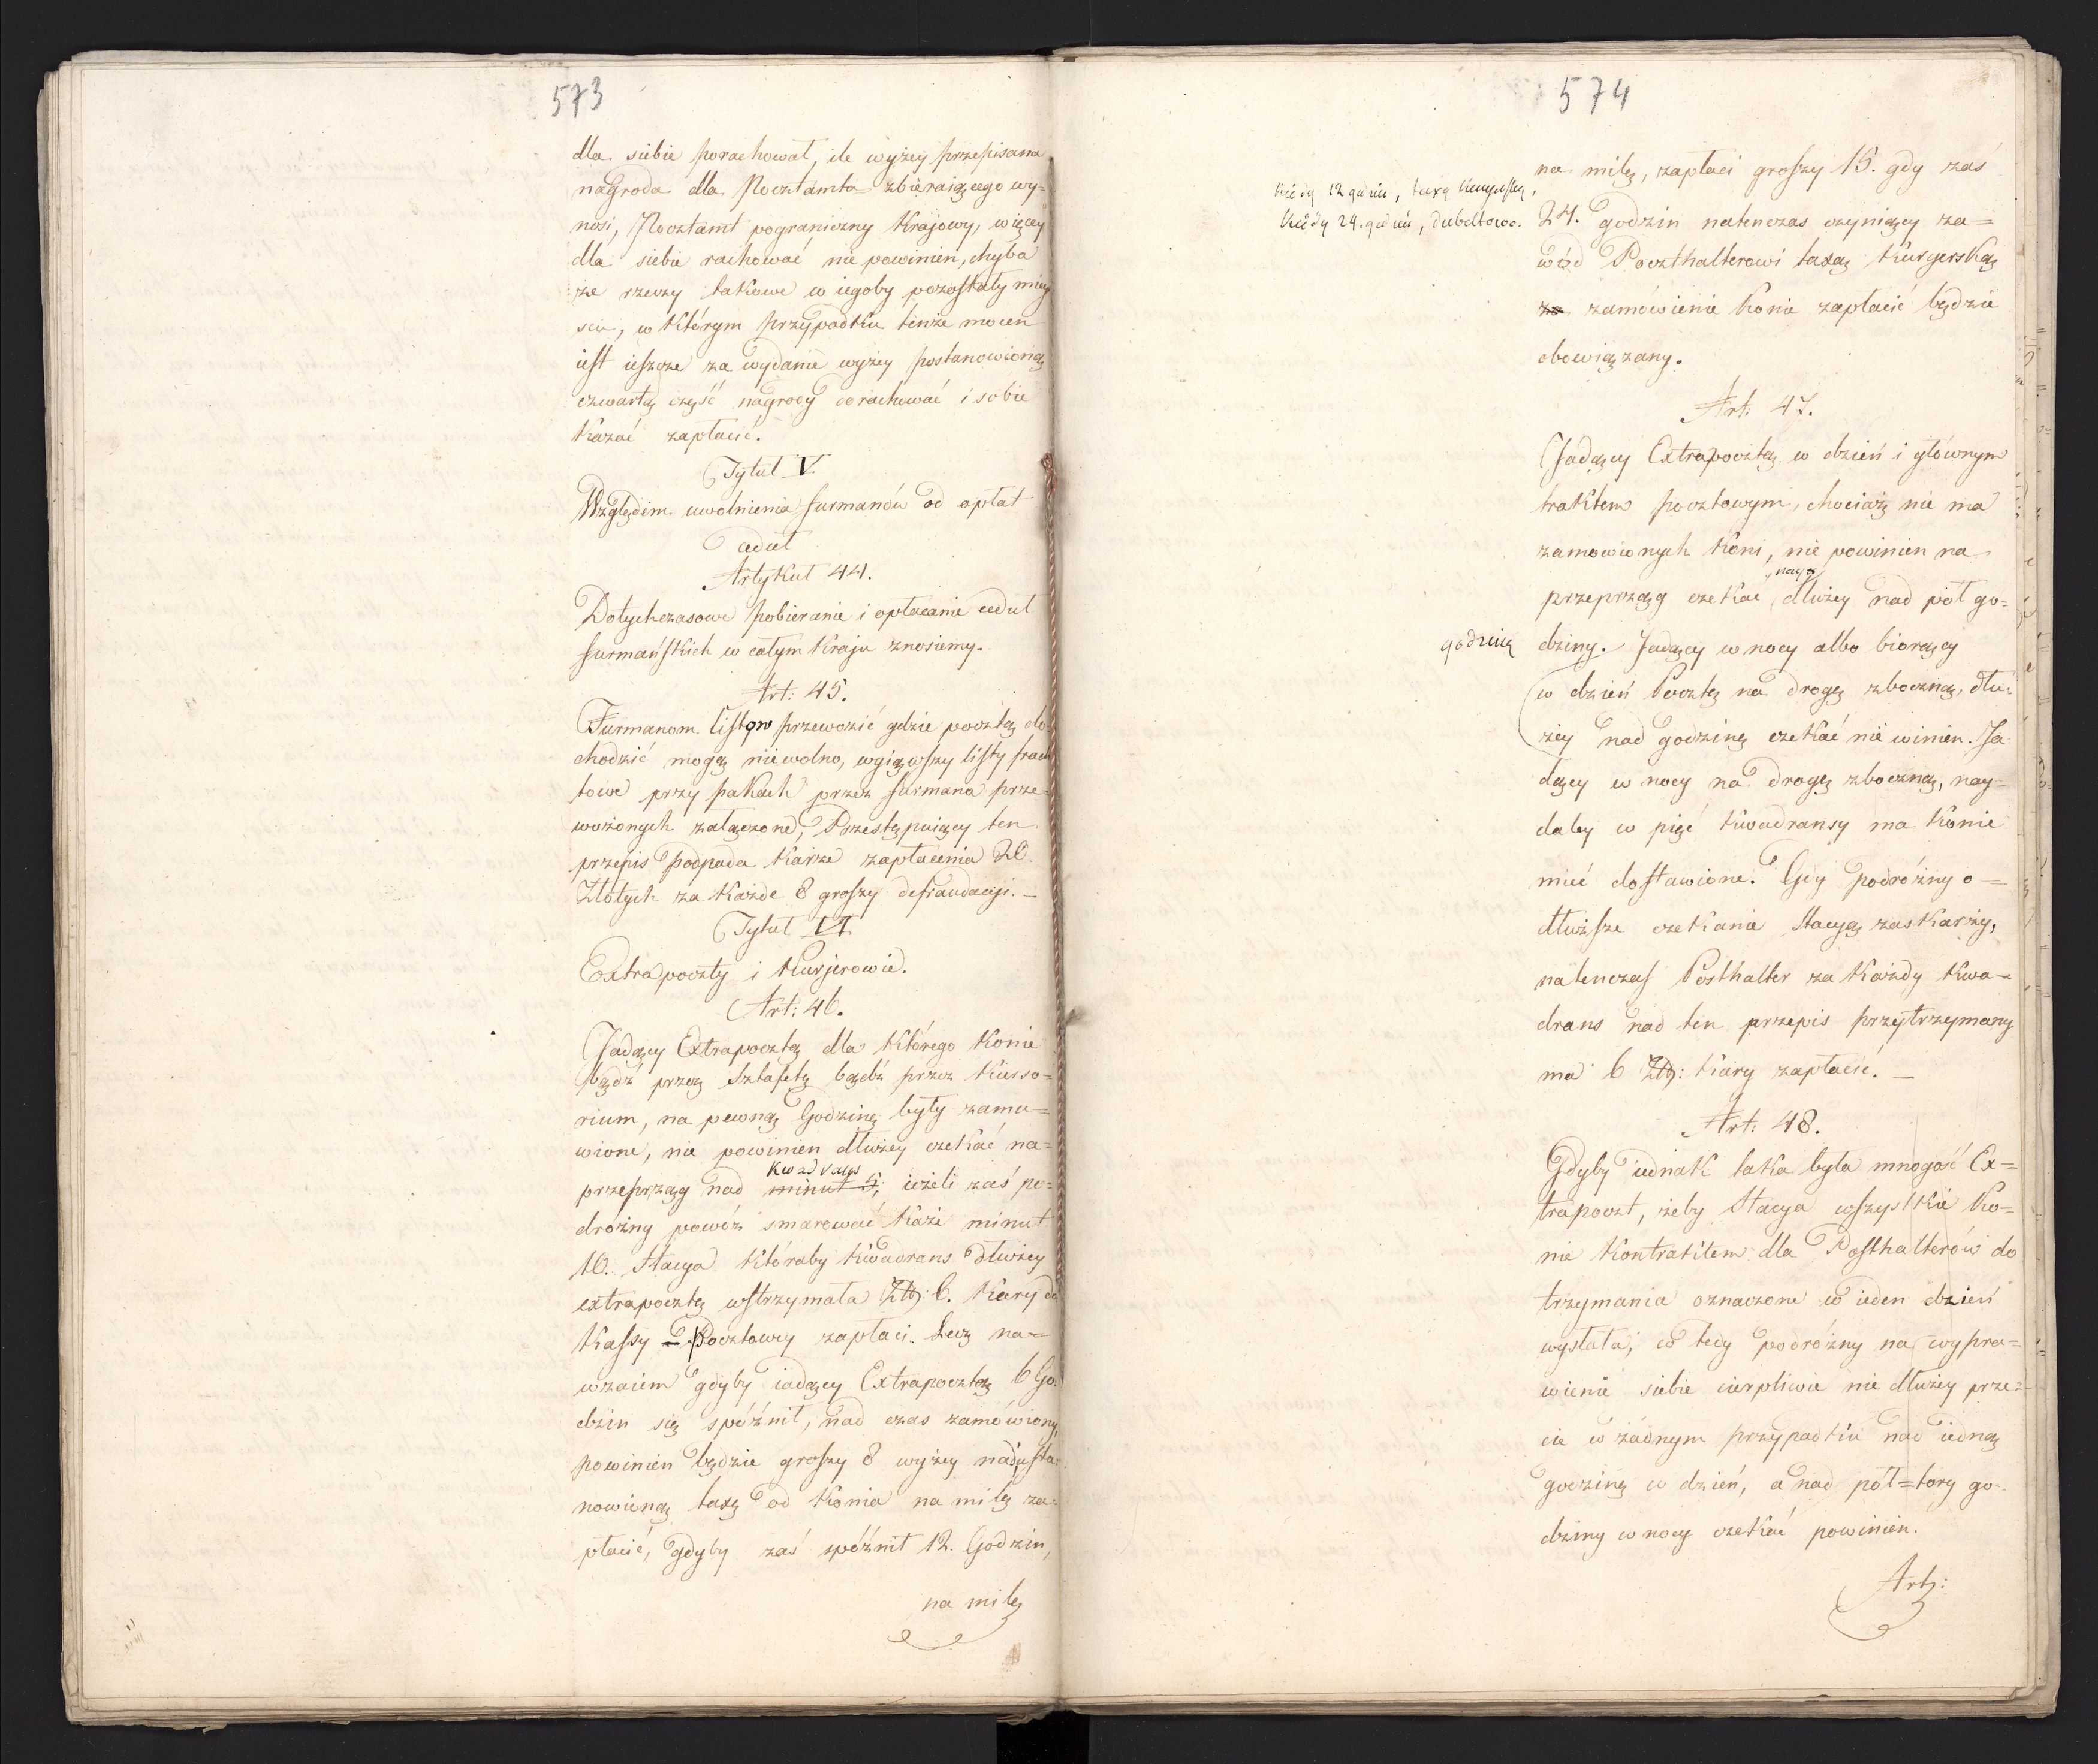 573
dla siebie porachował, ile wyżey przepisana
nagroda dla Pocztamta zbieraiącego wy=
nosi, Pocztamt pograniczny Krajowy, więcey
dla siebie rachować nie powinien, chyba
że rzeczy takowe w iegoby pozostały miey
scu, w którym przypadku tenże mocen
iest ieszcze za wydanie wyżey postanowioną
czwartą część nagrody dorachować i sobie
Kazać zapłacić.
Tytuł V.
Względem uwolnienia furmanów od opłat
ceduł
Artykuł 44.
Dotychczasowe pobieranie i opłacanie ceduł
furmańskich w całym Kraju znosiemy.
Art: 45.
Furmanom listow przewozić gdzie pocztą do
chodzić mogą niewolno, wyiąwszy listy frach
towe przy pakach przez furmana prze=
wożonych załączone, Przestępuiący ten
przepis podpada Karze zapłacenia 20.
Złotych za Każde 8 groszy defraudacyi. –
Tytuł VI
Extrapoczty i Kurjerowie.
Art: 46.
Jadący Extrapocztą dla Którego Konie
bądź przez Sztafetę bądź przez Kurso=
rium, na pewną Godzinę były zamu=
wione, nie powinien dłużey czekać na=
kwadrans
przeprząg nad minut 5; ieżeli zaś po=
drożny powóz smarować Każe minut
10. Stacya Któraby Kwadrans dłużey
extrapocztę wstrzymała Złp: 6. Kary do
Kassy – Pocztowey zapłaci. Lecz na=
wzaiem gdyby iadący Extrapocztą 6 Go=
dzin się spóźnił, nad czas zamówiony,
powinien będzie groszy 8 wyżey nad usta=
nowioną taxę od Konia na milę za=
płacić, gdyby zaś spóźnił 12. Godzin,
na milę
574
na milę, zapłaci groszy 15. gdy zaś
24. godzin natenczas czyniący za=
wód Poczthalterowi taxę Kuryerską
za zamówienie Konie zapłacić będzie
obowiązany.
Art: 47.
Jadący Extrapocztą w dzień i głównym
traktem pocztowym, chociaż nie ma
zamowionych Koni, nie powinien na
przeprząg czekać dłużey nad pół go=
godzinę
dziny. Jadący w nocy albo biorący
w dzień Pocztę na drogę zboczną, dłu=
żey nad godzinę czekać nie winien. Ja
dący w nocy na drogę zboczną, nay=
daley w pięć Kwadransy ma Konie
mieć dostawione. Gdy podróżny o =
dłuższe czekanie Stacyą zaskarży,
natenczas Posthalter za Każdy Kwa=
drans nad ten przepis przytrzymany
ma 6 Złp: Kary zapłacić. –
Art: 48.
Gdyby iednak taka była mnogość Ex=
trapoczt, żeby Stacya wszystkie Ko=
nie Kontraktem dla Posthalterów do
trzymania oznaczone w ieden dzień
wysłała, w tedy podróżny na wypra=
wienie siebie cierpliwie nie dłużey prze=
cie w żadnym przypadku nad iedną
godzinę w dzień, a nad pół=tory go=
dziny w nocy czekać powinien.
Art: